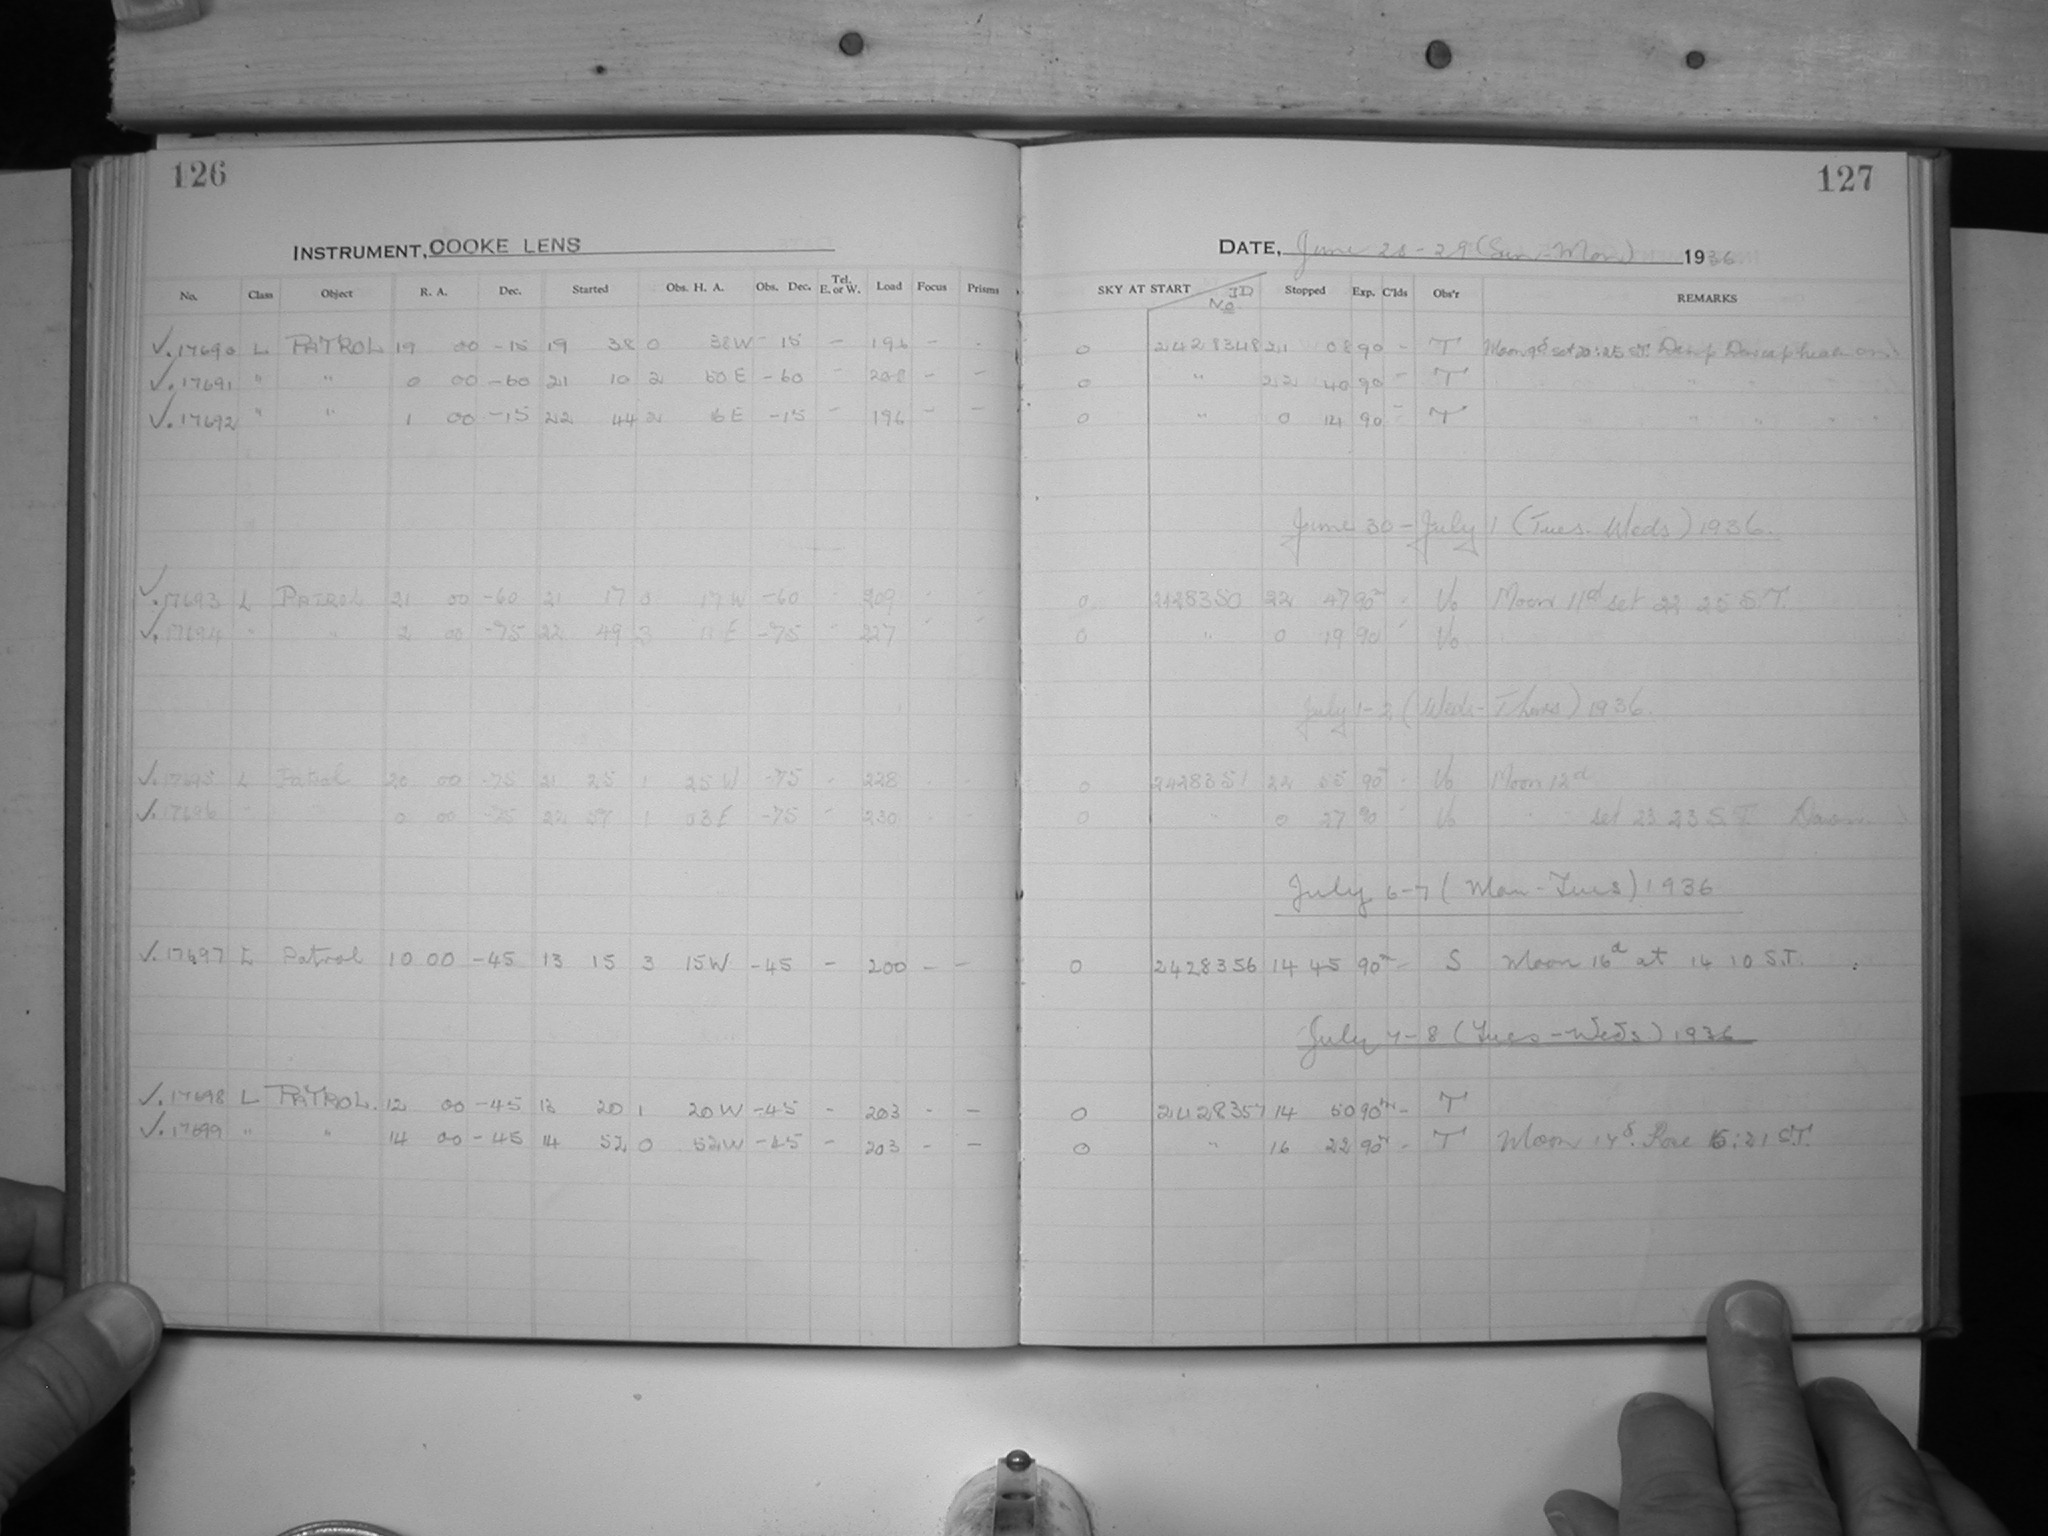 126
INSTRUMENT, COOKE LENS
No. Class Object R. A. Dec. Started Obs. H. A. Obs. Dec. Tel. E. or W. Load Focus Prisms
✓. 17690 L PATROL 19 00 -15 19 38 0 38W -15 - 196 - -
✓. 17691 " " 0 00 -60 21 10 2 50 E -60 - 208 - -
✓. 17692 " " 1 00 -15 22 44 2 16 E -15 - 196 - -
✓. 17693 L PATROL 21 00 -60 21 17 0 17 W -60 - 209 - -
✓. 17694 " " 2 00 -75 22 49 3 11 E -75 - 227 - -
✓. 17695 L Patrol 20 00 -75 21 25 1 25 W -75 - 228 - -
✓. 17696 0 00 -75 22 57 1 03 E -75 - 230 - -
✓. 17697 L Patrol 10 00 -45 13 15 3 15W -45 - 200 - -
✓. 17698 L PATROL. 12 00 -45 13 20 1 20W -45 - 203 - -
✓. 17699 " " 14 00 -45 14 52 0 52W -45 - 203 - -
127
DATE, June 28-29 (Sun-Mon) 1936
SKY AT START JD No Stopped Exp. C'lds Obs'r REMARKS
0 2428348 21 08 90 - T Moon 9d set 20:25 ST. Deep
0 " 22 40 90 - T " "
0 " 0 14 90 - T " " " "
June 30 - July 1 (Tues. Weds) 1936.
0 2428350 22 47 90m - Vo Moon 11d set 22 25 S.T.
0 " 0 19 90 - Vo
July 1-2 (Weds-Thurs) 1936.
0 2428351 22 55 90m - Vo Moon 12d
0 " 0 27 90 - Vo " set 23 23 S T
July 6-7 (Mon-Tues) 1936
0 2428356 14 45 90m - S Moon 16d at 14 10 S.T.
July 7-8 (Tues-Weds.) 1936
0 2428357 14 50 90m - T
0 " 16 22 90m - T Moon 17d. Rose 15:21 S.T.